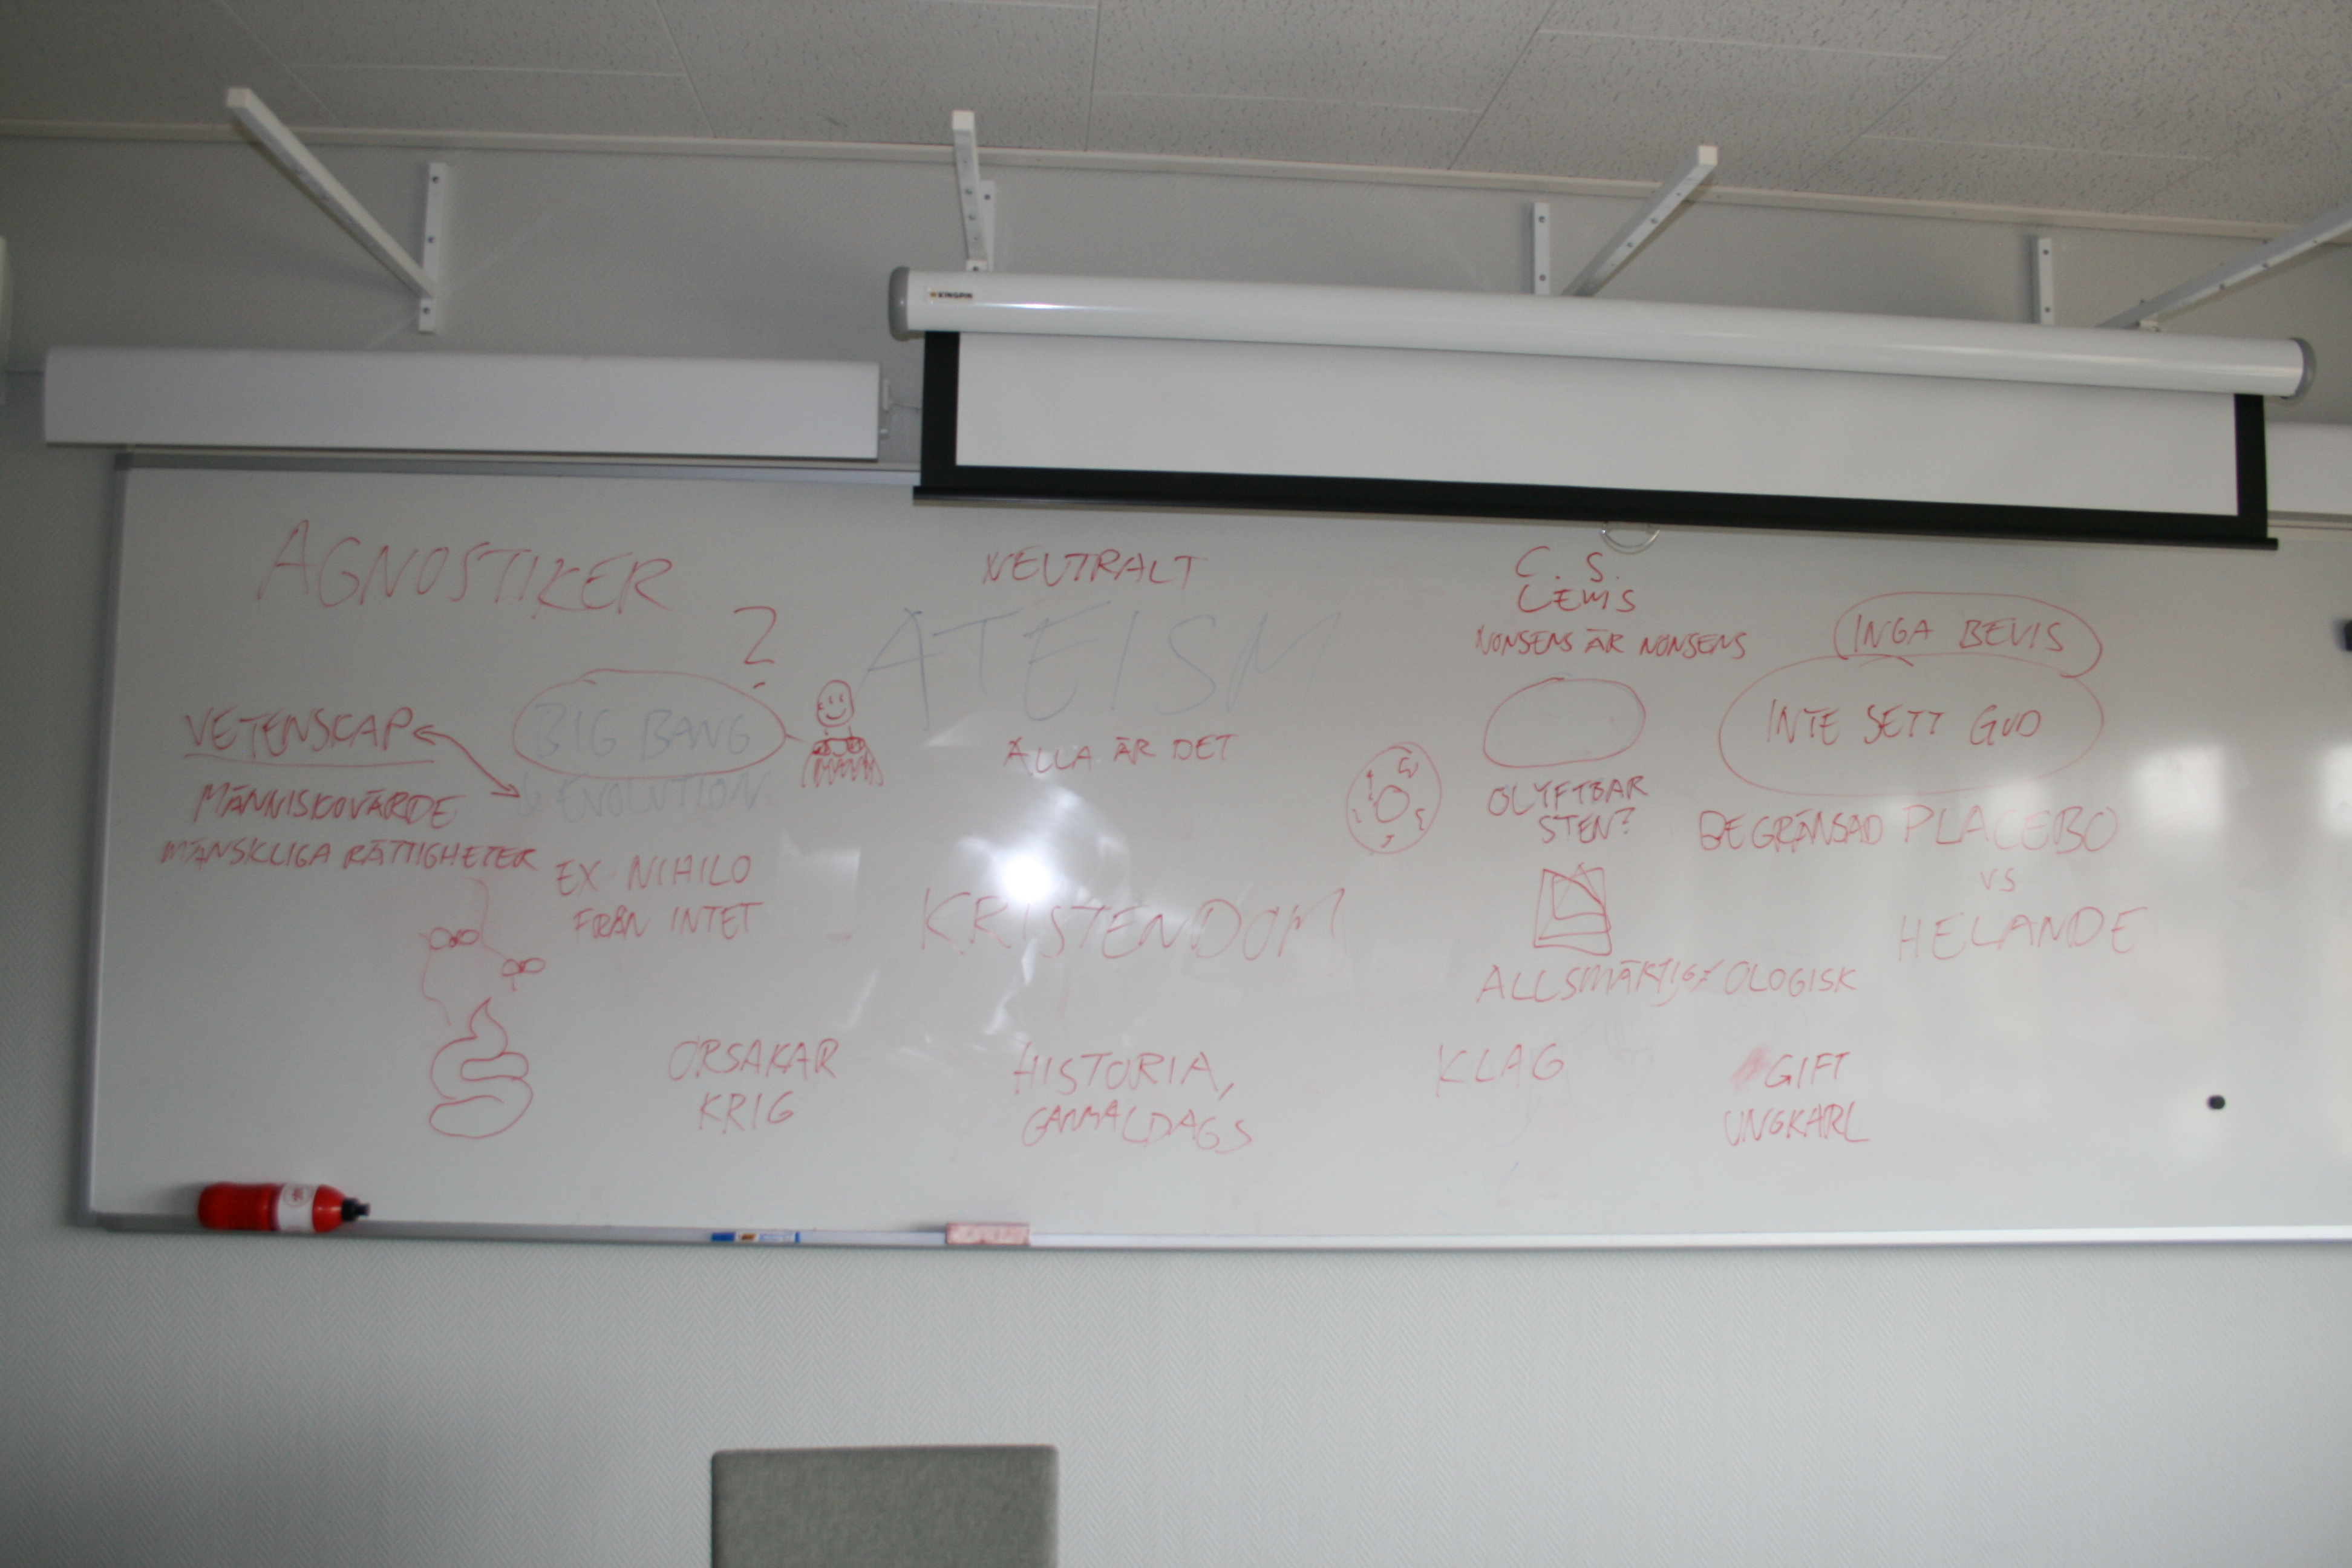 AGNOSTIKER
?
NEUTRALT
ATEISM
ALLA ÄR DET
VETENSKAP
BIG BANG
& EVOLUTION
MÄNNISKOVÄRDE
MÄNSKLIGA RÄTTIGHETER
EX NIHILO
FRÅN INTET
KRISTENDOM
C. S.
LEWIS
NONSENS ÄR NONSENS
OLYFTBAR
STEN?
ALLSMÄKTIG ≠ OLOGISK
INGA BEVIS
INTE SETT GUD
BEGRÄNSAD PLACEBO
VS
HELANDE
ORSAKAR
KRIG
HISTORIA,
GAMMALDAGS
KLAG
GIFT
UNGKARL